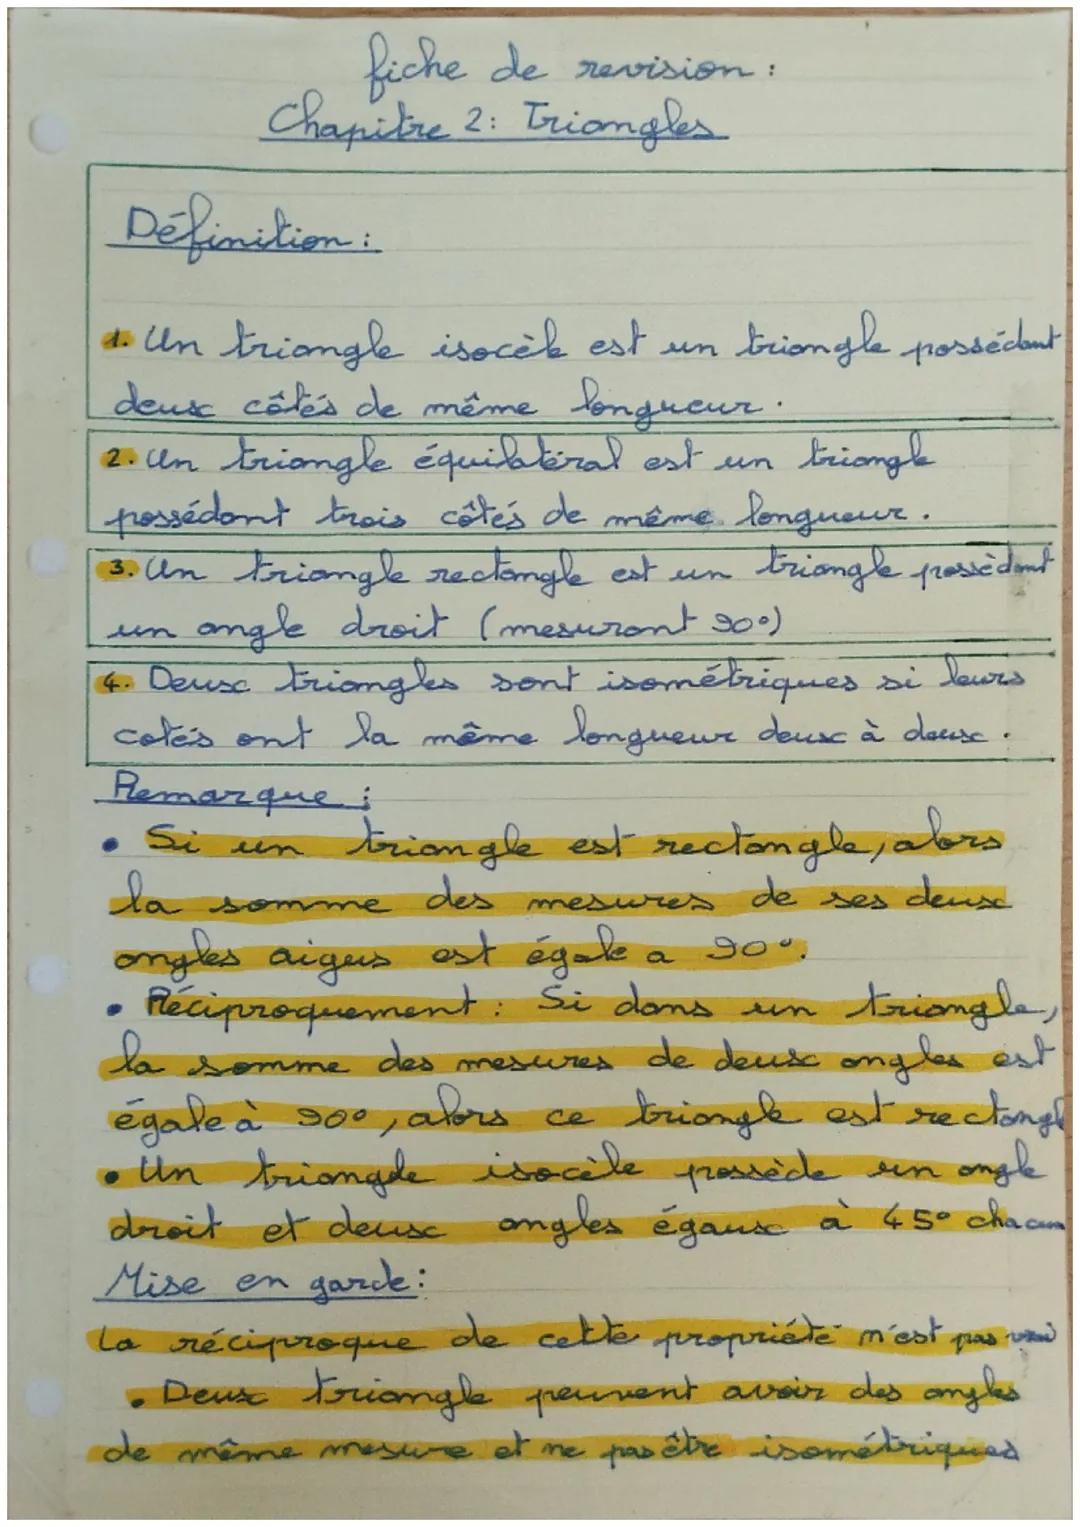 fiche de revision :
Chapitre 2: Triangles
Définition :
1. Un triangle isocèle est un triangle possédant
deux côtés de même longueur.
2. Un triangle équilatéral est un triangle
possédant trois côtés de même longueur.
3. Un triangle rectangle est un triangle possèdant
un angle droit (mesurant 90°)
4. Deux triangles sont isométriques si leurs
cotés ont la même longueur deux à deux.
Remarque :
• Si un triangle est rectangle, alors
la somme des mesures de ses deux
angles aigus est égale a 90°.
• Réciproquement : Si dans un triangle,
la somme des mesures de deux angles est
égale à 90°, alors ce triangle est rectangle
• Un triangle isocèle possède un angle
droit et deux angles égaux à 45° chacun
Mise en garde:
La réciproque de cette propriété n'est pas vrai
• Deux triangle peuvent avoir des angles
de même mesure et ne pas être isométriques